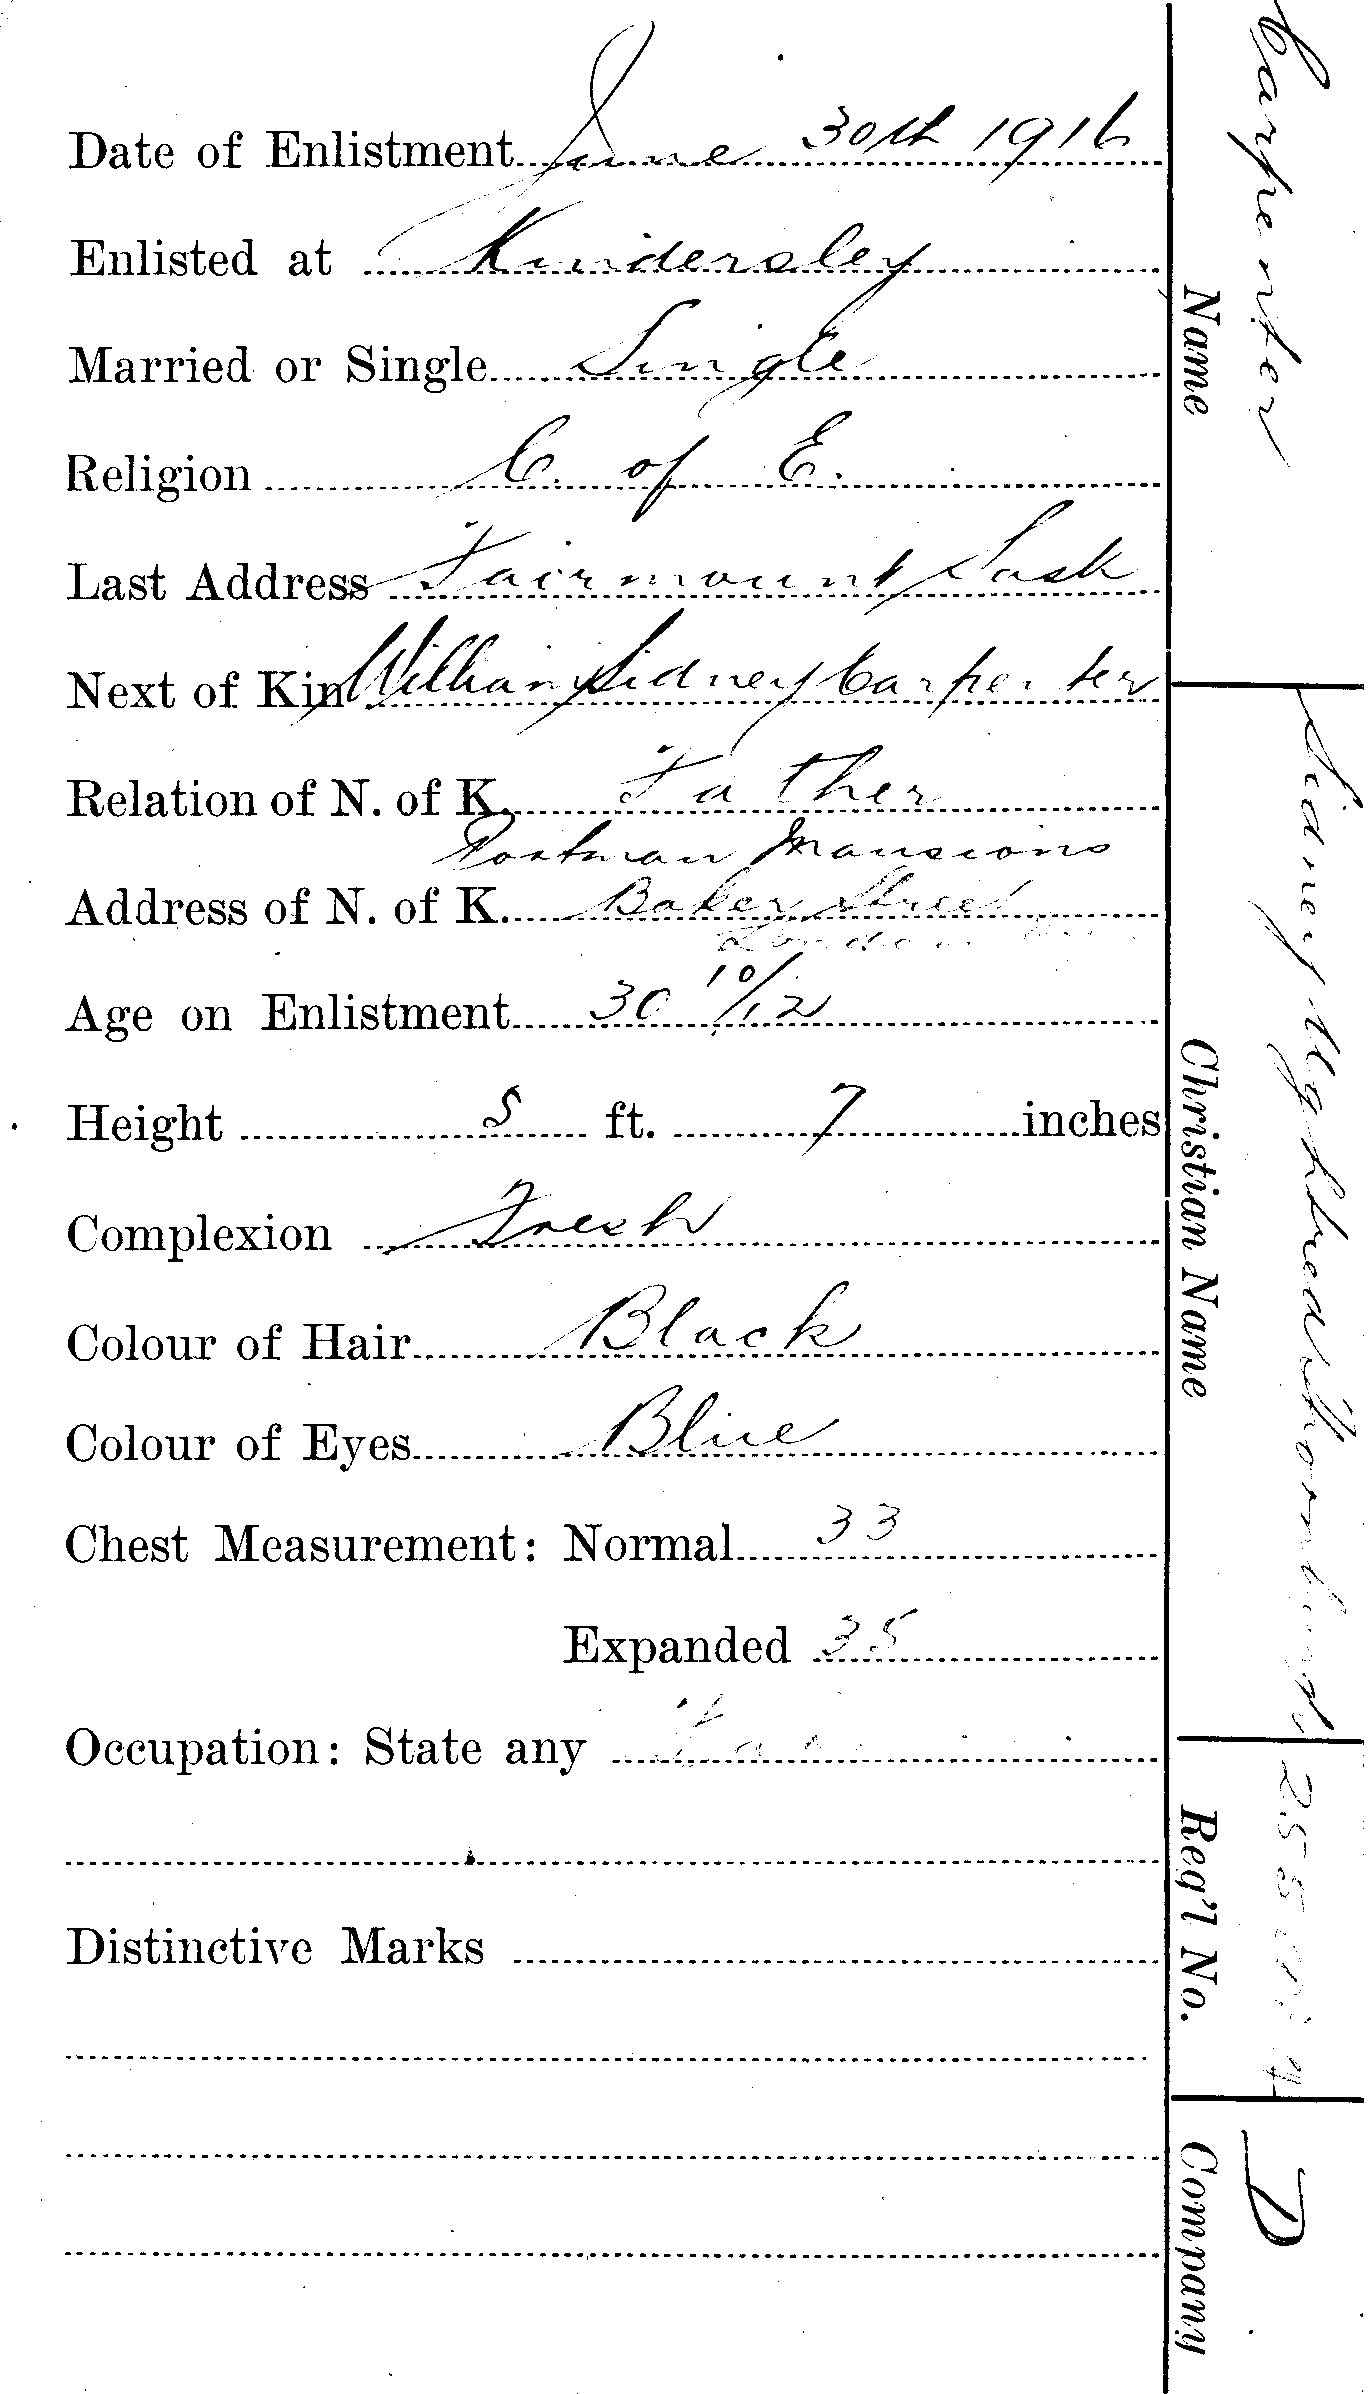 Date of Enlistment June 30th 1916
Enlisted at Kindersley
Married or Single Single
Religion C. of E.
Last Address Fairmount Sask
Next of Kin William Sidney Carpenter
Relation of N. of K. Father
Portman Mansions
Address of N. of K. Baker Street
London
Age on Enlistment 30 10/12
Height 5 ft. 7 inches
Complexion Fresh
Colour of Hair Black
Colour of Eyes Blue
Chest Measurement: Normal 33
Expanded 35
Occupation: State any
Distinctive Marks
Name Carpenter
Christian Name Sidney
Reg'l No.
Company D